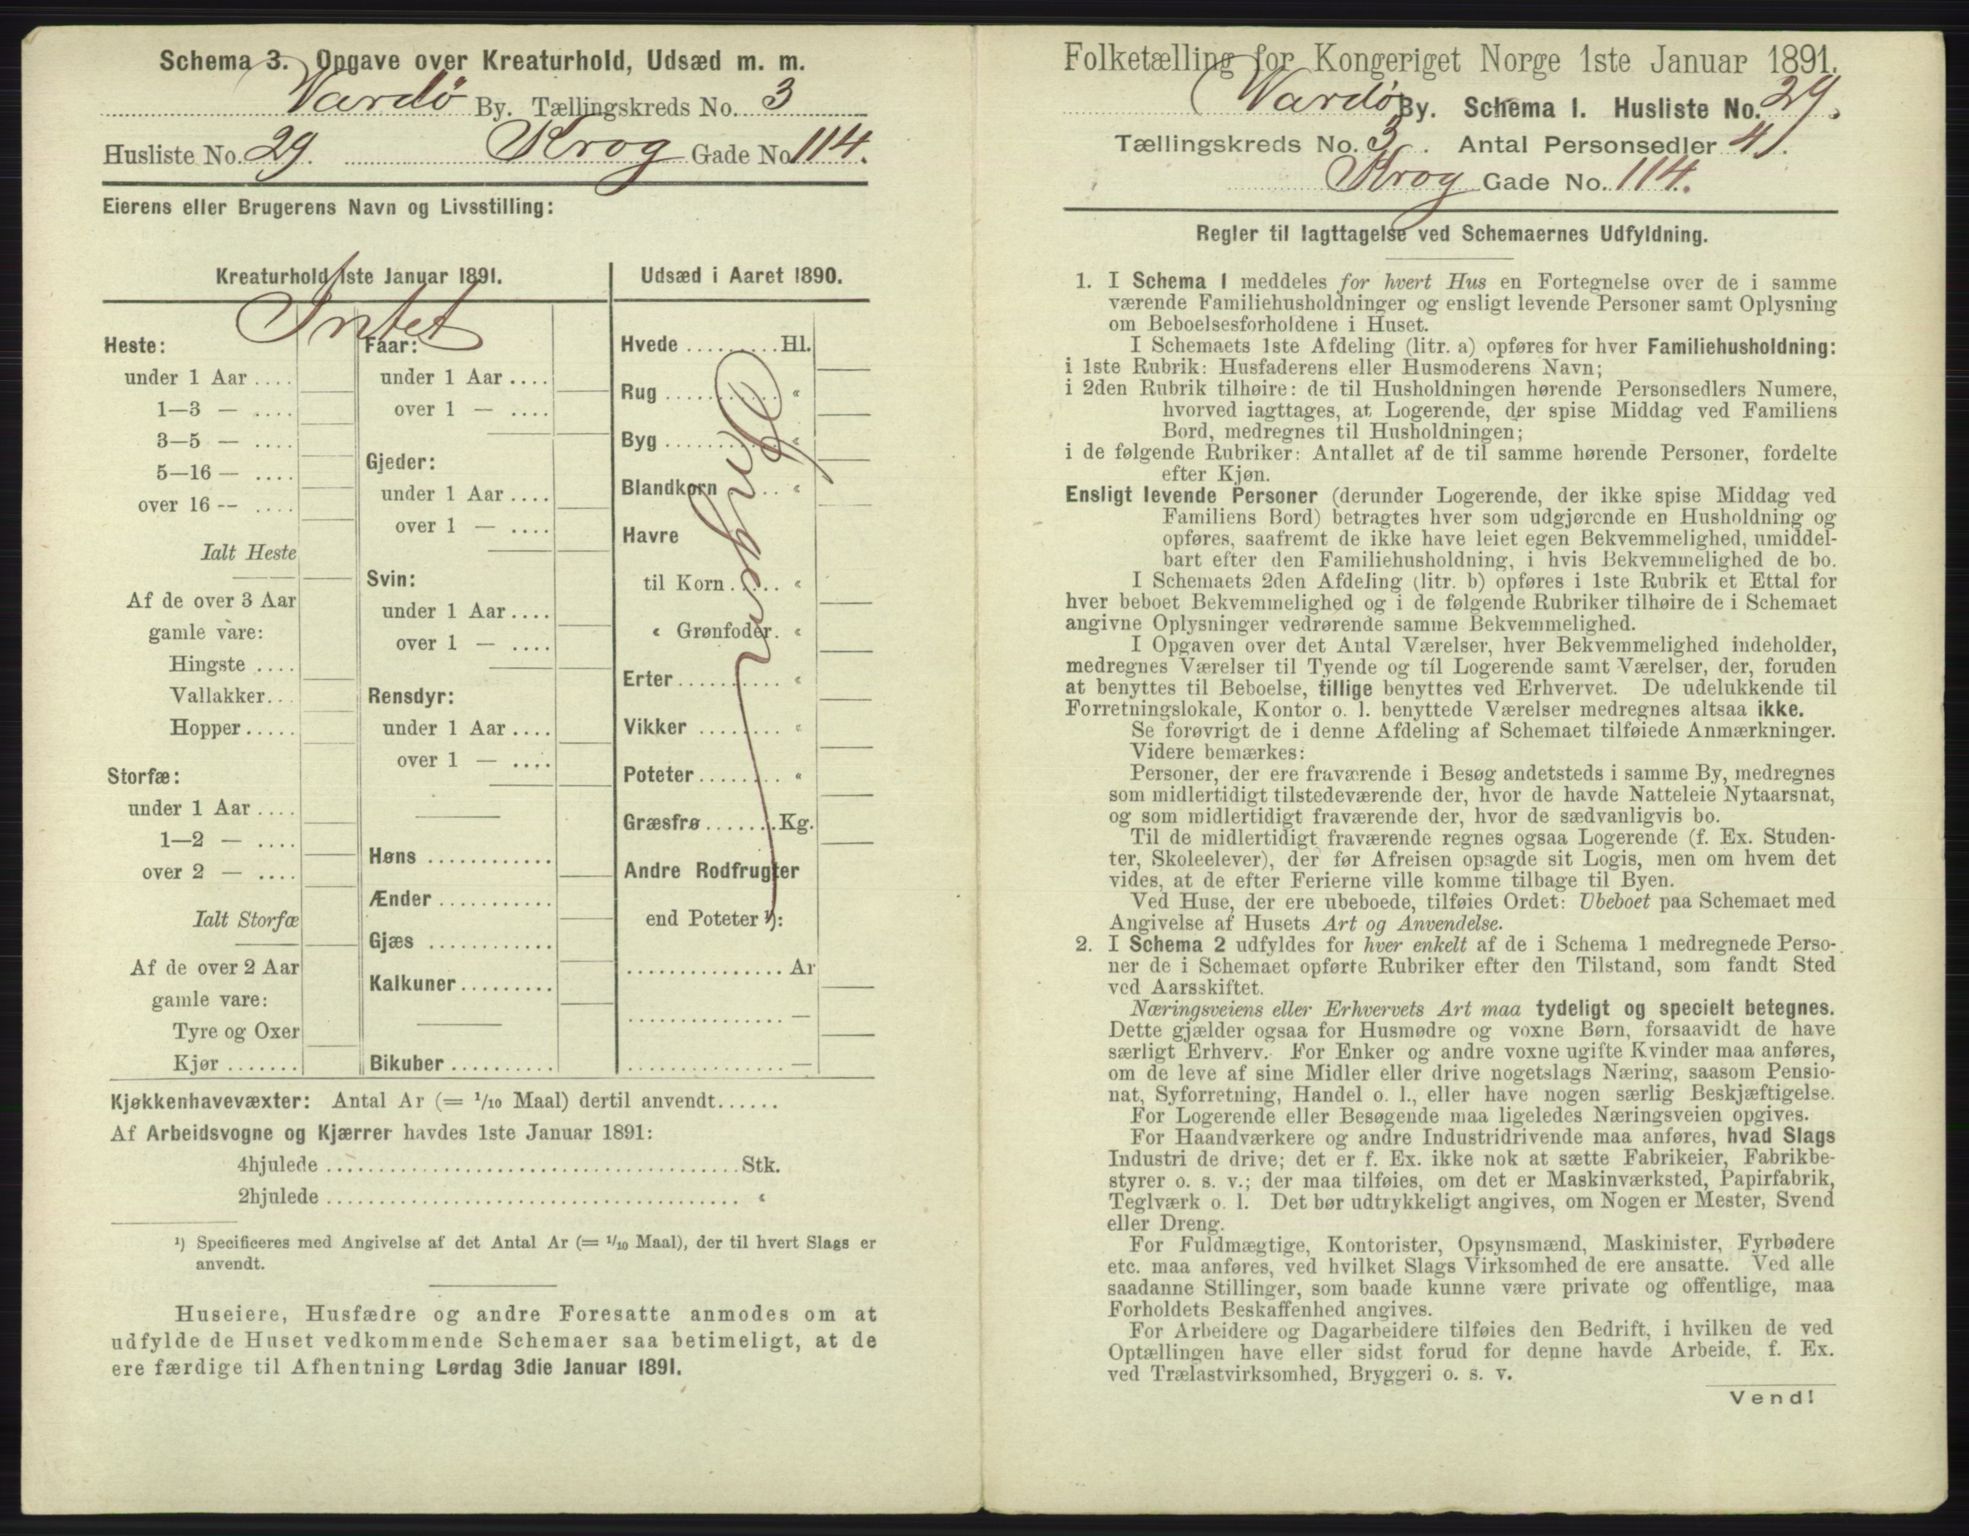 Schema 3. Opgave over Kreaturhold, Udsæd m. m.
Vardö By. Tællingskreds No. 3
Husliste No. 29. Krog Gade No 114.
Eierens eller Brugerens Navn og Livsstilling:
Kreaturhold 1ste Januar 1891.
Intet
Heste:
under 1 Aar ....
1—3 — ....
3—5 — ....
5—16 — ....
over 16 -- ....
Ialt Heste
Af de over 3 Aar
gamle vare:
Hingste ....
Vallakker...
Hopper .....
Storfæ:
under 1 Aar ....
1—2 — ....
over 2 — ....
Ialt Storfæ
Af de over 2 Aar
gamle vare:
Tyre og Oxer
Kjør .......
Faar:
under 1 Aar ....
over 1 — ....
Gjeder:
under 1 Aar ....
over 1 — ....
Svin:
under 1 Aar ....
over 1 — ....
Rensdyr:
under 1 Aar ....
over 1 — ....
Høns ............
Ænder ...........
Gjæs ............
Kalkuner .........
Bikuber ..........
Udsæd i Aaret 1890.
Hvede .........Hl.
Rug ........... „
Byg ........... „
Blandkorn .... „
Havre
til Korn ..... „
„ Grønfoder. „
Erter .......... „
Vikker ........ „
Poteter ....... „
Græsfrø .......Kg.
Andre Rodfrugter
end Poteter ¹):
............... Ar
............... —
............... —
Kjøkkenhavevæxter: Antal Ar (= 1/10 Maal) dertil anvendt......
Af Arbeidsvogne og Kjærrer havdes 1ste Januar 1891:
4hjulede .......................................Stk.
2hjulede ....................................... „
¹) Specificeres med Angivelse af det Antal Ar (= 1/10 Maal), der til hvert Slags er
anvendt.
Huseiere, Husfædre og andre Foresatte anmodes om at
udfylde de Huset vedkommende Schemaer saa betimeligt, at de
ere færdige til Afhentning Lørdag 3die Januar 1891.
Folketælling for Kongeriget Norge 1ste Januar 1891.
Vardö By. Schema I. Husliste No. 29.
Tællingskreds No. 3. Antal Personsedler 4.
Krog Gade No. 114.
Regler til Iagttagelse ved Schemaernes Udfyldning.
1. I Schema I meddeles for hvert Hus en Fortegnelse over de i samme
værende Familiehusholdninger og ensligt levende Personer samt Oplysning
om Beboelsesforholdene i Huset.
I Schemaets 1ste Afdeling (litr. a) opføres for hver Familiehusholdning:
i 1ste Rubrik: Husfaderens eller Husmoderens Navn;
i 2den Rubrik tilhøire: de til Husholdningen hørende Personsedlers Numere,
hvorved iagttages, at Logerende, der spise Middag ved Familiens
Bord, medregnes til Husholdningen;
i de følgende Rubriker: Antallet af de til samme hørende Personer, fordelte
efter Kjøn.
Ensligt levende Personer (derunder Logerende, der ikke spise Middag ved
Familiens Bord) betragtes hver som udgjørende en Husholdning og
opføres, saafremt de ikke have leiet egen Bekvemmelighed, umiddel-
bart efter den Familiehusholdning, i hvis Bekvemmelighed de bo.
I Schemaets 2den Afdeling (litr. b) opføres i 1ste Rubrik et Ettal for
hver beboet Bekvemmelighed og i de følgende Rubriker tilhøire de i Schemaet
angivne Oplysninger vedrørende samme Bekvemmelighed.
I Opgaven over det Antal Værelser, hver Bekvemmelighed indeholder,
medregnes Værelser til Tyende og til Logerende samt Værelser, der, foruden
at benyttes til Beboelse, tillige benyttes ved Erhvervet. De udelukkende til
Forretningslokale, Kontor o. l. benyttede Værelser medregnes altsaa ikke.
Se forøvrigt de i denne Afdeling af Schemaet tilføiede Anmærkninger.
Videre bemærkes:
Personer, der ere fraværende i Besøg andetsteds i samme By, medregnes
som midlertidigt tilstedeværende der, hvor de havde Natteleie Nytaarsnat,
og som midlertidigt fraværende der, hvor de sædvanligvis bo.
Til de midlertidigt fraværende regnes ogsaa Logerende (f. Ex. Studen-
ter, Skoleelever), der før Afreisen opsagde sit Logis, men om hvem det
vides, at de efter Ferierne ville komme tilbage til Byen.
Ved Huse, der ere ubeboede, tilføies Ordet: Ubeboet paa Schemaet med
Angivelse af Husets Art og Anvendelse.
2. I Schema 2 udfyldes for hver enkelt af de i Schema 1 medregnede Perso-
ner de i Schemaet opførte Rubriker efter den Tilstand, som fandt Sted
ved Aarsskiftet.
Næringsveiens eller Erhvervets Art maa tydeligt og specielt betegnes.
Dette gjælder ogsaa for Husmødre og voxne Børn, forsaavidt de have
særligt Erhverv. For Enker og andre voxne ugifte Kvinder maa anføres,
om de leve af sine Midler eller drive nogetslags Næring, saasom Pensio-
nat, Syforretning, Handel o. l., eller have nogen særlig Beskjæftigelse.
For Logerende eller Besøgende maa ligeledes Næringsveien opgives.
For Haandværkere og andre Industridrivende maa anføres, hvad Slags
Industri de drive; det er f. Ex. ikke nok at sætte Fabrikeier, Fabrikbe-
styrer o. s. v.; der maa tilføies, om det er Maskinværksted, Papirfabrik,
Teglværk o. l. Det bør udtrykkeligt angives, om Nogen er Mester, Svend
eller Dreng.
For Fuldmægtige, Kontorister, Opsynsmænd, Maskinister, Fyrbødere
etc. maa anføres, ved hvilket Slags Virksomhed de ere ansatte. Ved alle
saadanne Stillinger, som baade kunne være private og offentlige, maa
Forholdets Beskaffenhed angives.
For Arbeidere og Dagarbeidere tilføies den Bedrift, i hvilken de ved
Optællingen have eller sidst forud for denne havde Arbeide, f. Ex.
ved Trælastvirksomhed, Bryggeri o. s. v.
Vend!